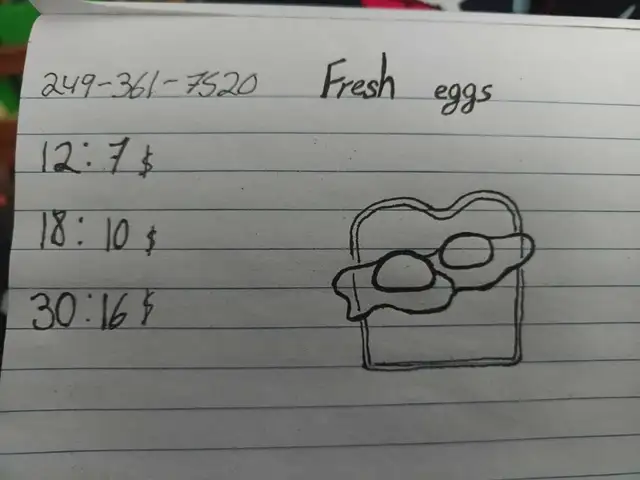 249-361-7520
Fresh eggs
12: 7 $
18: 10 $
30: 16 $